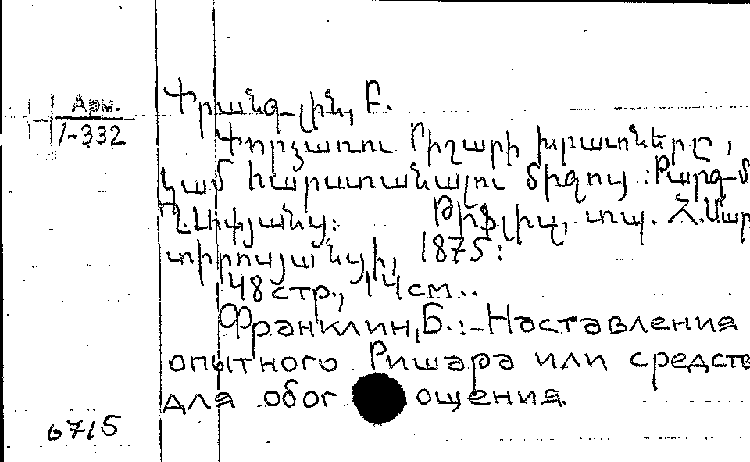 Арм.
1-332
Ֆրանգլին, Բ.
Փորձառու Րիշարի խրատները,
կամ հարստանալու միջոց: Թարգ-մ
Թիֆլիս, տպ. Հ. Մար
տիրոսյանցի, 1875:
48 стр., 14 см..
Франклин, Б.:-Наставления
опытного Ришара или средств
для обог ощения.
6715